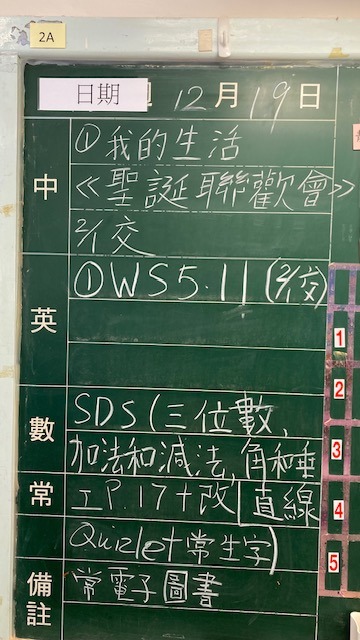 2A
日期 12月19日
中
①我的生活
《聖誕聯歡會》
2/1交
英
①WS5.11(2/1交)
數
SDS(三位數、
加法和減法,角和垂
直線
常
工P.17+改
Quizlet常生字)
備註
常電子圖書
1
2
3
4
5